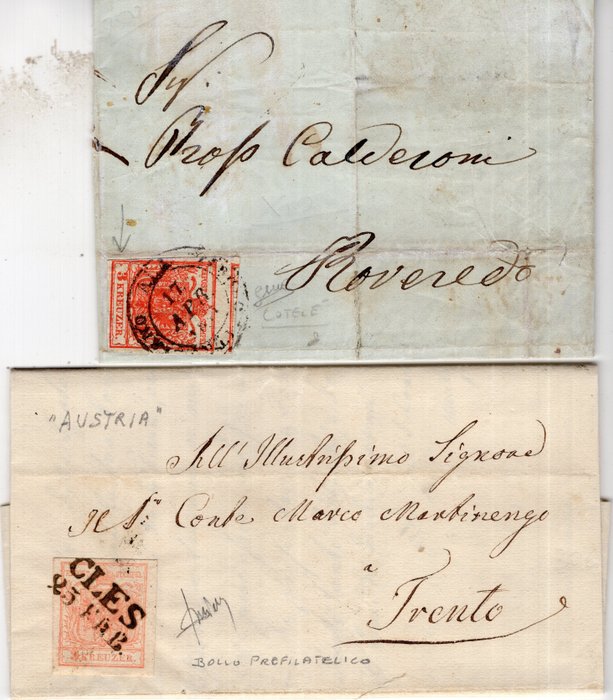 Sig.
Prof Calderoni
Roveredo
3 KREUZER.
17
APR
COTELÉ
"AUSTRIA"
All' Illustrissimo Signore
Il S.r Conte Marco Martinengo
a
Trento
CLES
25 FEB.
KREUZER.
BOLLO PREFILATELICO